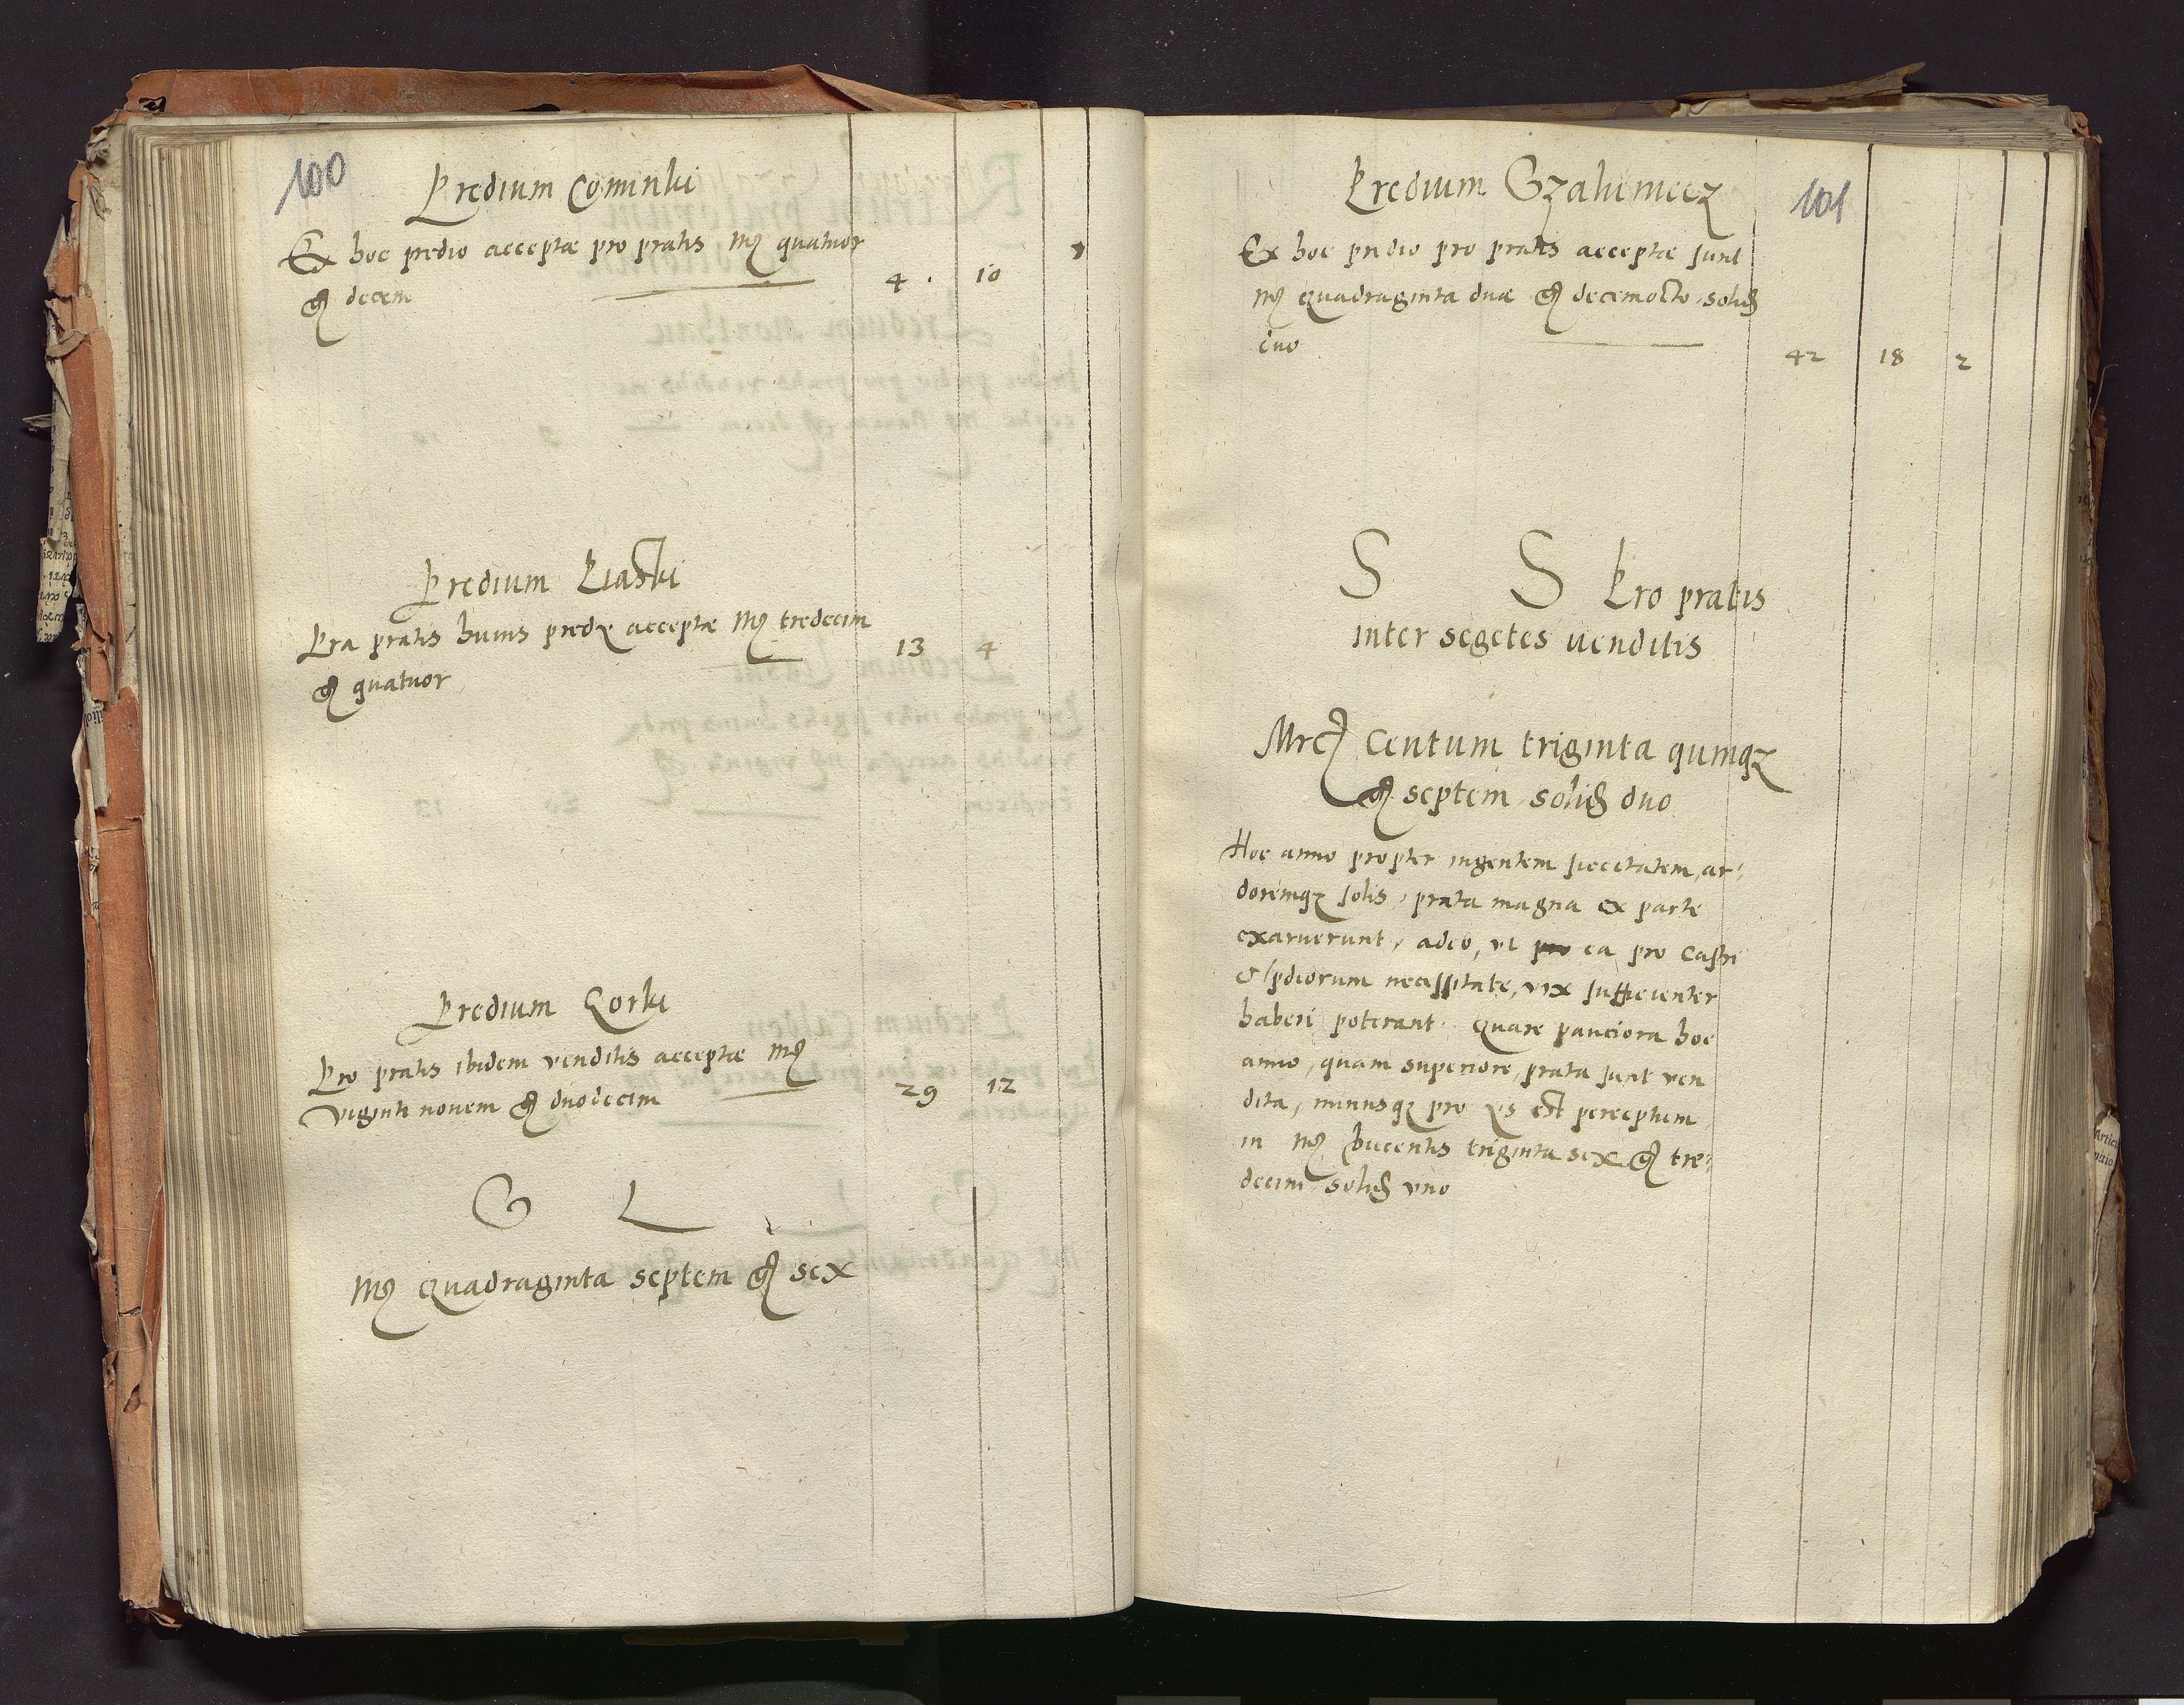 100
Predium Cominki
Ex hoc predio acceptæ pro pratis Mꝶ quatuor
gꝶ decem 4 . 10
Predium Piaski
Pra pratis huius predÿ acceptæ Mꝶ tredecim
gꝶ quatuor 13 4
Predium Gorki
Pro pratis ibidem venditis acceptæ Mꝶ
viginti novem gꝶ duodecim 29 12
G L
Mꝶ quadraginta septem gꝶ sex
101
Predium Gzalicmecz
Ex hoc predio pro pratis acceptæ sunt
Mꝶ quadraginta duæ gꝶ decemocto solid
duo 42 18 2
S S Pro pratis
inter segetes venditis
Mrcꝶ Centum triginta quinqꝫ
gꝶ septem solid duo
Hoc anno propter ingentem siccitatem, ar⸗
doremqꝫ solis, prata magna ex parte
exaruerunt, adeo, vt pro ea pro Castri
& pdiorum necessitate, vix sufficienter
haberi poterant. Quare pauciora hoc
anno, quam superiore, prata sunt ven
dita, minusqꝫ pro ÿs est perceptum
in Mꝶ ducentis triginta sex gꝶ tre⸗
decim solid vno